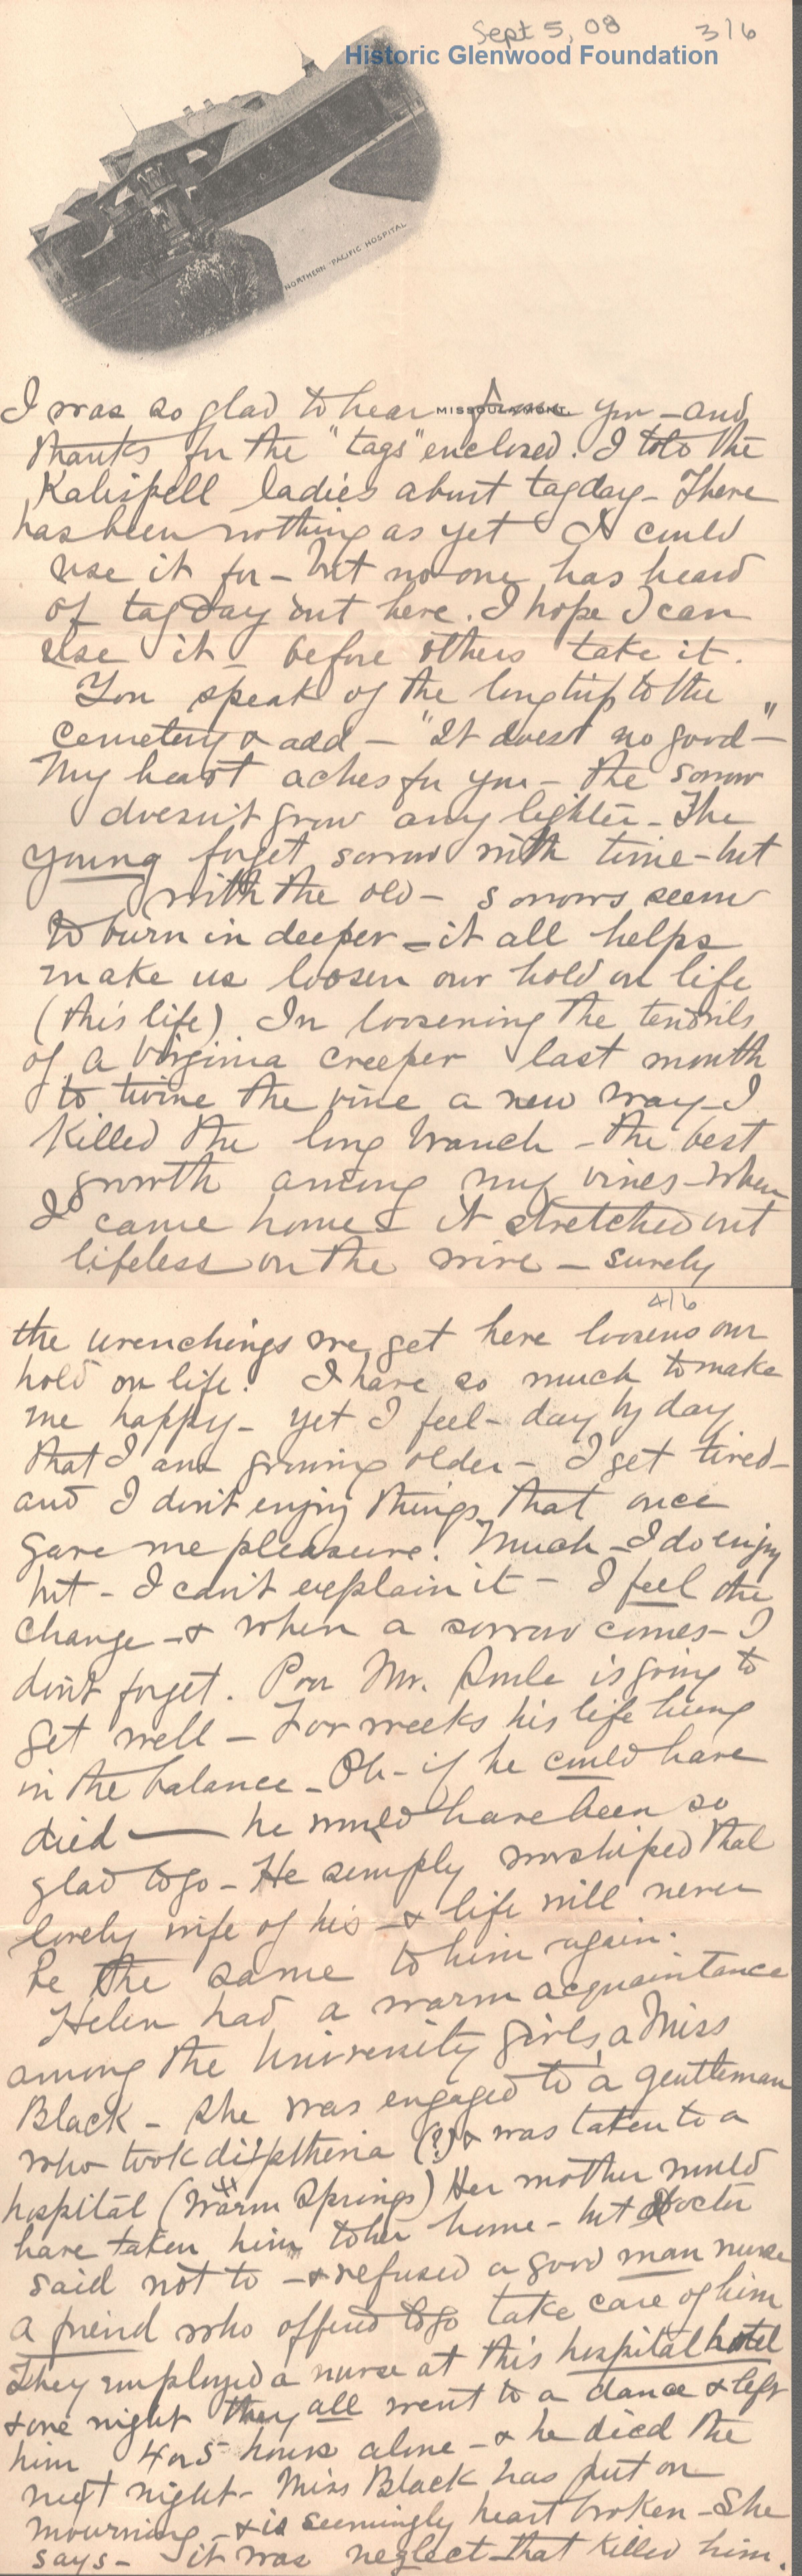 Sept 5, 08 3/6
Historic Glenwood Foundation
NORTHERN PACIFIC HOSPITAL
MISSOULA, MONT.
I was so glad to hear from you - and
thanks for the "tags" enclosed. I told the
Kalispell ladies about tagday - There
has been nothing as yet I could
use it for - but no one has heard
of tag day out here. I hope I can
use it - before others take it.
You speak of the long trip to the
cemetery & add - "It does no good" -
My heart aches for you - the sorrow
doesn't grow any lighter - The
young forget sorrow with time - but
with the old - sorrows seem
to burn in deeper - it all helps
make us loosen our hold on life
(this life) In loosening the tendrils
of a Virginia creeper last month
to twine the vine a new way - I
killed the long branch - the best
growth among my vines - when
I came home it stretched out
lifeless on the wire - surely
4/6
the wrenchings we get here loosens our
hold on life. I have so much to make
me happy - yet I feel - day by day
that I am growing older - I get tired -
and I don't enjoy things that once
gave me pleasure. Much - I do enjoy
but - I can't explain it - I feel the
change - & when a sorrow comes - I
don't forget. Poor Mr. is going to
get well - For weeks his life hung
in the balance - Oh - if he could have
died - he would have been so
glad to go - He simply worshiped that
lovely wife of his - & life will never
be the same to him again.
Helen had a warm acquaintance
among the University girls, a Miss
Black - She was engaged to a gentleman
who took diptheria (?) & was taken to a
hospital (Warm Springs) Her mother would
have taken him to her home - but Doctor
said not to - & refused a good man nurse
a friend who offered to go take care of him
They employed a nurse at this hospital hotel
& one night they all went to a dance & left
him 4 or 5 hours alone - & he died the
next night - Miss Black has put on
mourning - & is seemingly heart broken - She
says - it was neglect that killed him.